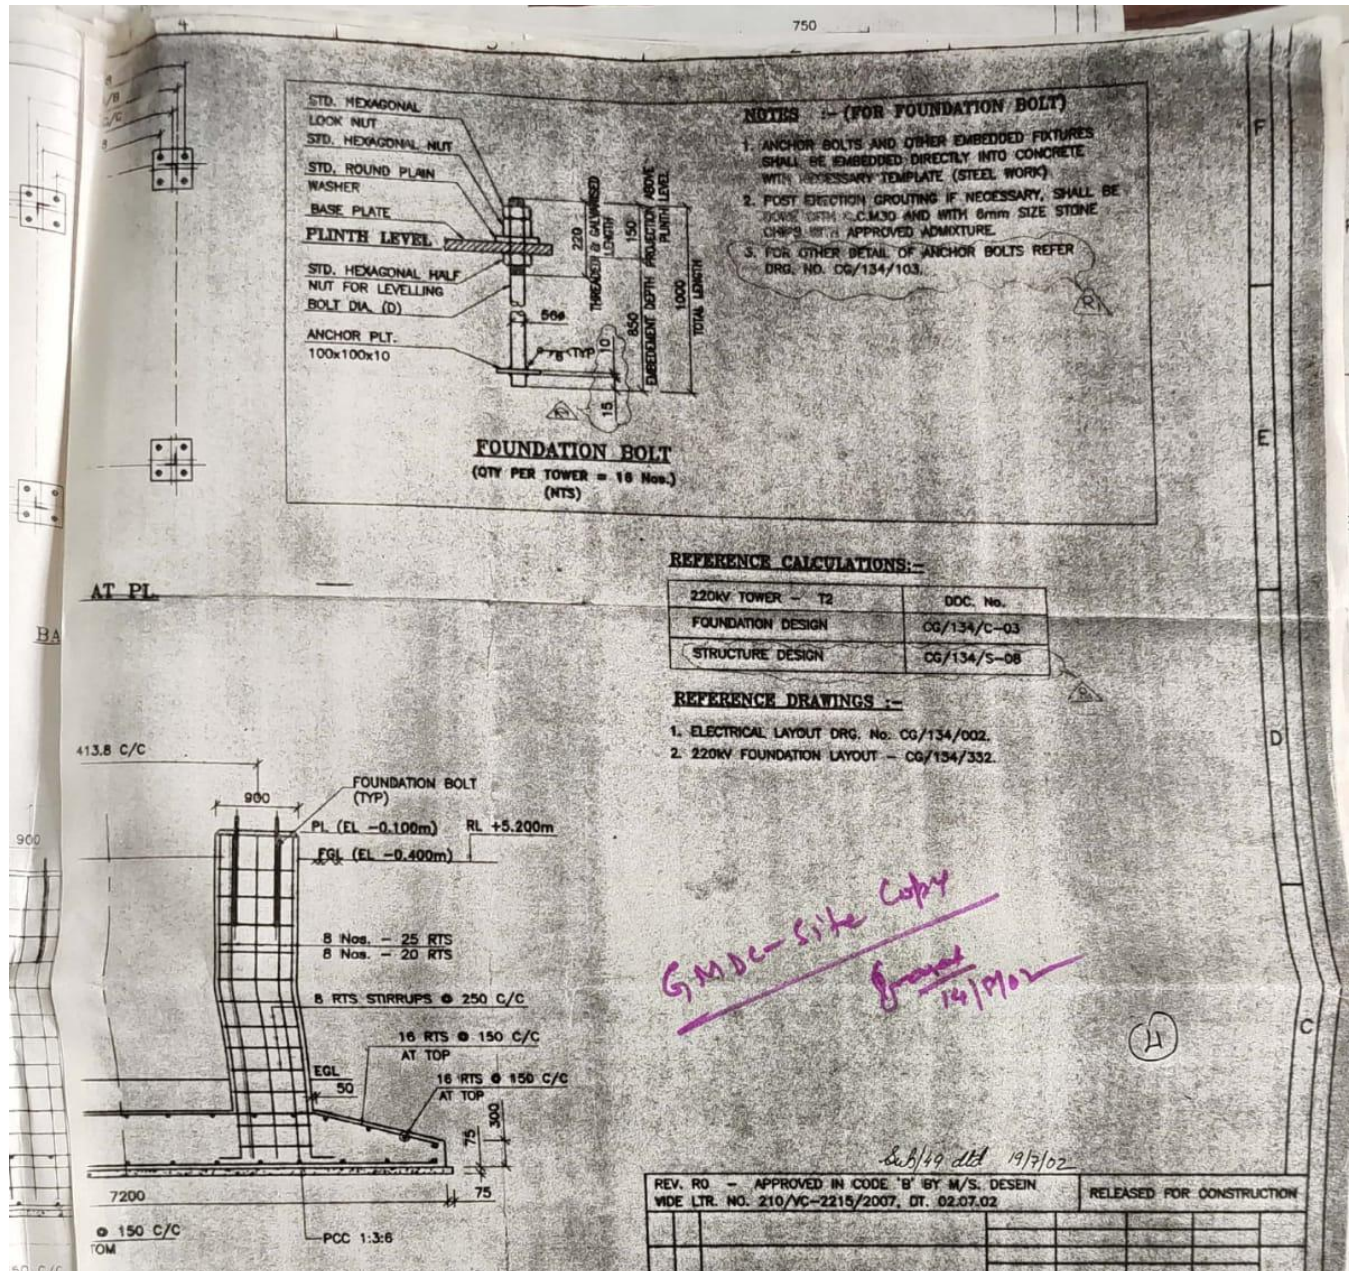 750
4
STD. HEXAGONAL
LOOK NUT
STD. HEXAGONAL NUT
STD. ROUND PLAIN
WASHER
BASE PLATE
PLINTH LEVEL
STD. HEXAGONAL HALF
NUT FOR LEVELLING
BOLT DIA. (D)
ANCHOR PLT.
100x100x10
220
THREADED & GALVANISED
LENGTH
150
PROJECTION ABOVE
PLINTH LEVEL
850
EMBEDEMENT DEPTH
1000
TOTAL LENGTH
56ø
TYP
10
15
FOUNDATION BOLT
(QTY PER TOWER = 16 Nos.)
(NTS)
NOTES :- (FOR FOUNDATION BOLT)
1. ANCHOR BOLTS AND OTHER EMBEDDED FIXTURES
SHALL BE EMBEDDED DIRECTLY INTO CONCRETE
WITH NECESSARY TEMPLATE (STEEL WORK)
2. POST ERECTION GROUTING IF NECESSARY, SHALL BE
DONE WITH C.C.M30 AND WITH 6mm SIZE STONE
CHIPS WITH APPROVED ADMIXTURE.
3. FOR OTHER DETAIL OF ANCHOR BOLTS REFER
DRG. NO. CG/134/103.
R1
F
E
D
C
AT PL
BA
REFERENCE CALCULATIONS:-
220KV TOWER - T2 DOC. No.
FOUNDATION DESIGN CG/134/C-03
STRUCTURE DESIGN CG/134/S-08
REFERENCE DRAWINGS :-
1. ELECTRICAL LAYOUT DRG. No. CG/134/002.
2. 220KV FOUNDATION LAYOUT - CG/134/332.
413.8 C/C
FOUNDATION BOLT
(TYP)
900
900
PL (EL -0.100m) RL +5.200m
FGL (EL -0.400m)
8 Nos. - 25 RTS
8 Nos. - 20 RTS
8 RTS STIRRUPS @ 250 C/C
16 RTS @ 150 C/C
AT TOP
EGL
50
16 RTS @ 150 C/C
AT TOP
300
75
7200
75
@ 150 C/C
TOM
PCC 1:3:6
GMDC-Site Copy
4
19/7/02
REV. R0 - APPROVED IN CODE 'B' BY M/S. DESEIN
VIDE LTR. NO. 210/VC-2215/2007, DT. 02.07.02
RELEASED FOR CONSTRUCTION